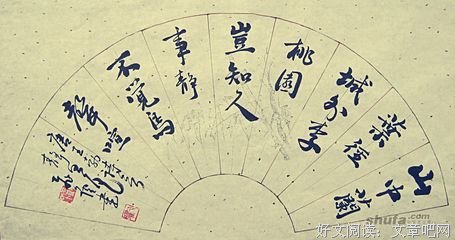 山中蘭
葉徑
城外李
桃園
豈知人
事静
不覺鳥
聲喧
唐王勃詩
shufa.com
好文阅读：文章吧网